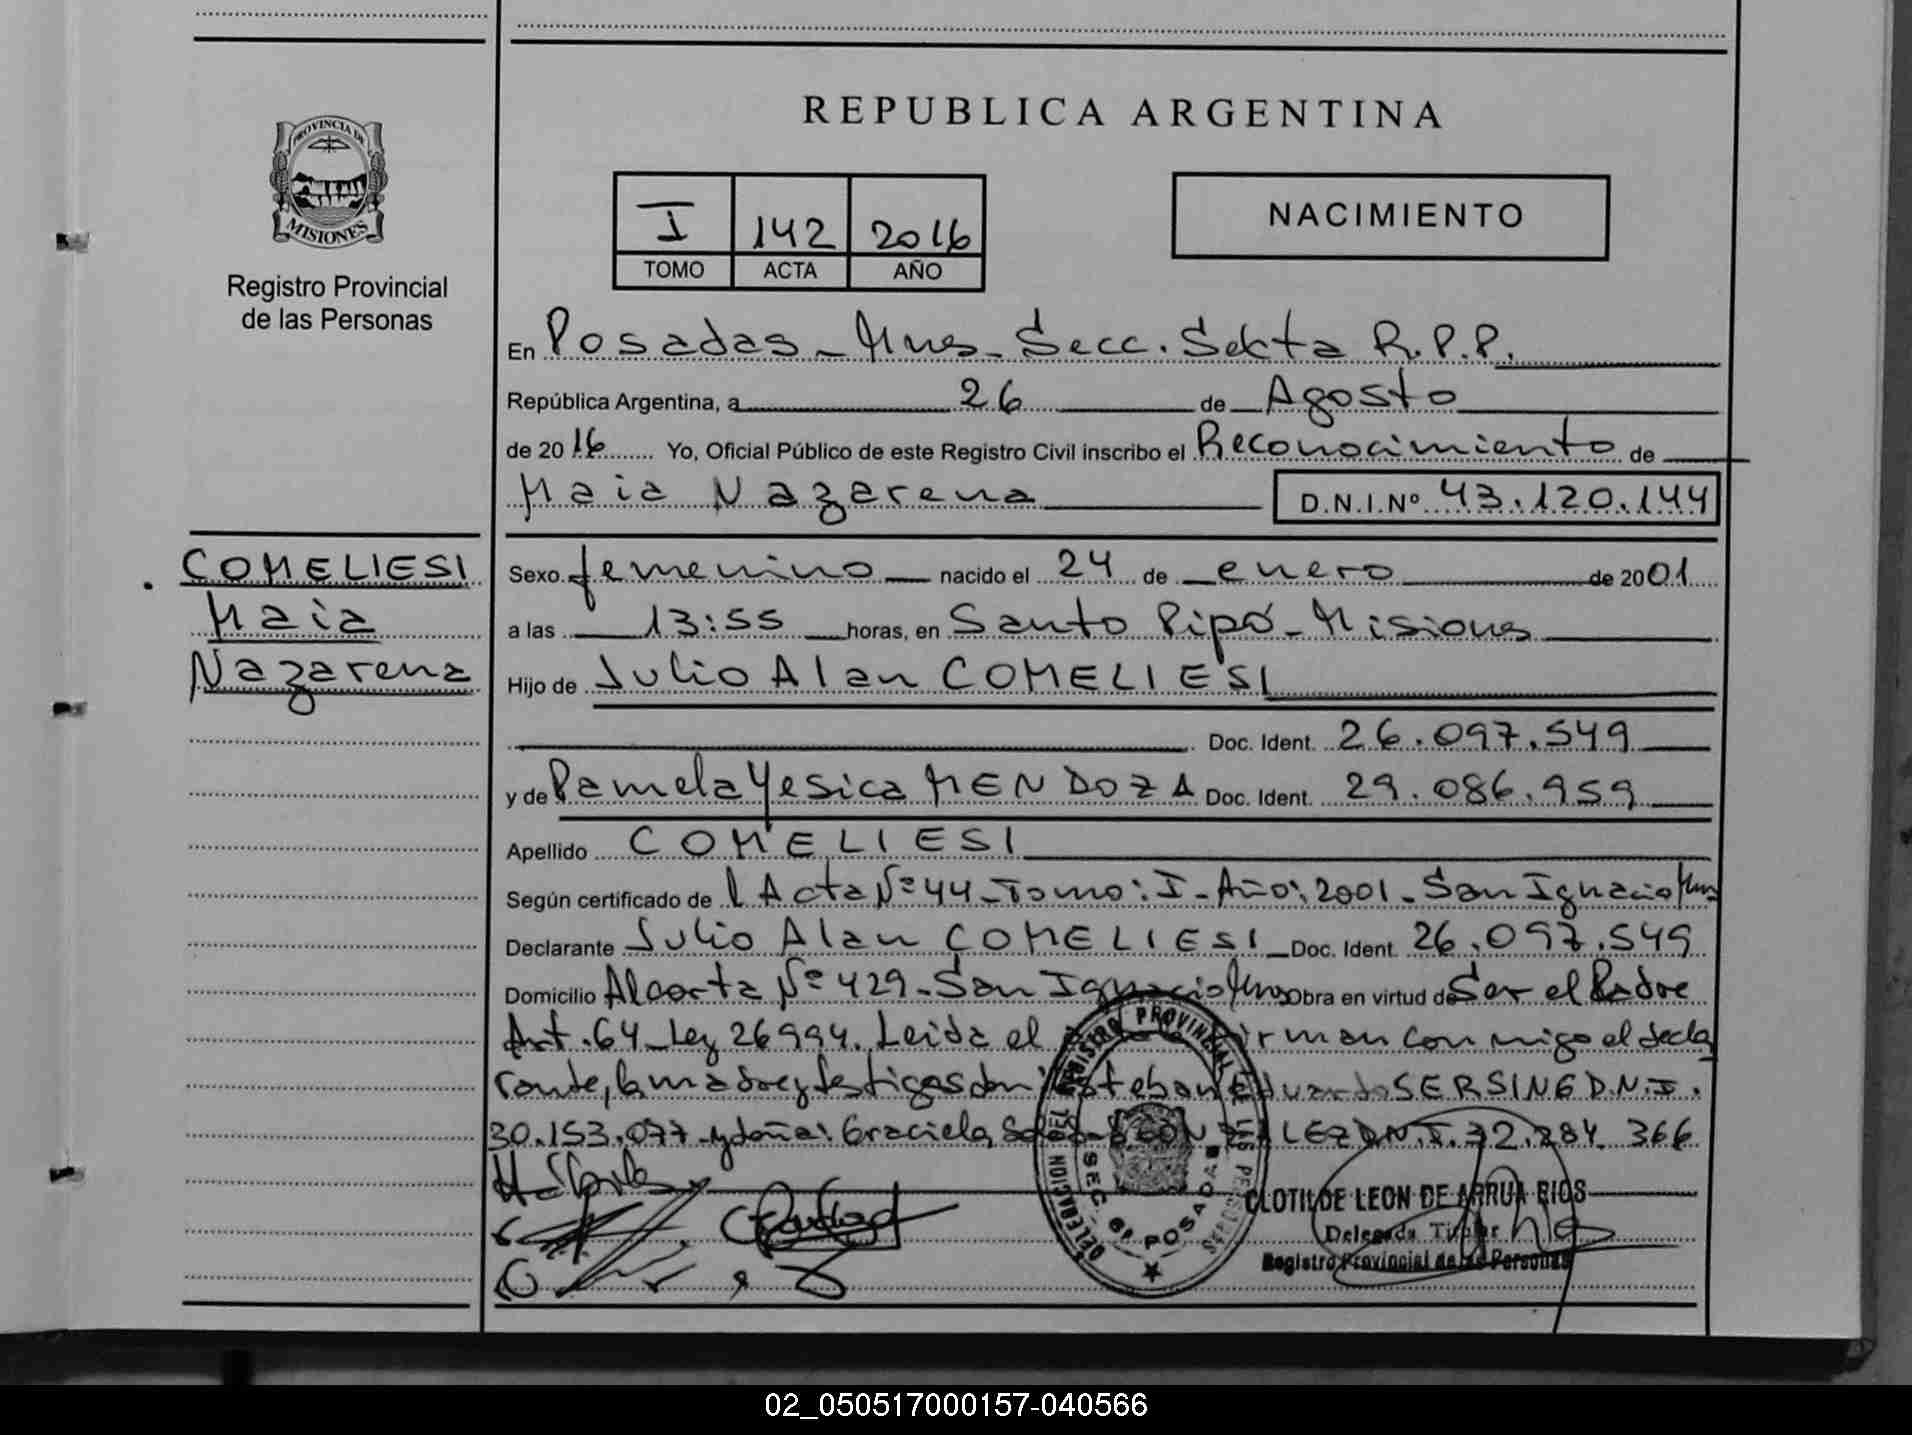 PROVINCIA DE
MISIONES
Registro Provincial
de las Personas
REPUBLICA ARGENTINA
I 142 2016
TOMO ACTA AÑO
NACIMIENTO
En Posadas - Mnes - Secc. Sexta R.P.P.
República Argentina, a 26 de Agosto
de 2016 Yo, Oficial Público de este Registro Civil inscribo el Reconocimiento de
Maia Nazarena D.N.I.Nº 43.120.144
COMELIESI
Maia
Nazarena
Sexo femenino nacido el 24 de enero de 2001
a las 13:55 horas, en Santo Pipó - Misiones
Hijo de Julio Alan COMELIESI
Doc. Ident. 26.097.549
y de Pamela Yesica MENDOZA Doc. Ident. 29.086.959
Apellido COMELIESI
Según certificado de l Acta Nº 44 - Tomo: I - Año: 2001 - San Ignacio Mnes
Declarante Julio Alan COMELIESI Doc. Ident. 26.097.549
Domicilio Alcorta Nº 429 - San Ignacio Mnes Obra en virtud de Ser el Padre
Art. 64 - Ley 26994. Leida el firman conmigo el decla
rante, la madre y testigos don: Esteban Eduardo SERSING D.N.I.
30.153.077 - y doña: Graciela D.N.I. 366
REGISTRO PROVINCIAL DE LAS PERSONAS
DELEGACION
SEC. 6ª POSADAS
CLOTILDE LEON DE ARRUA RIOS
Delegada Titular
Registro Provincial de las Personas
02_050517000157-040566